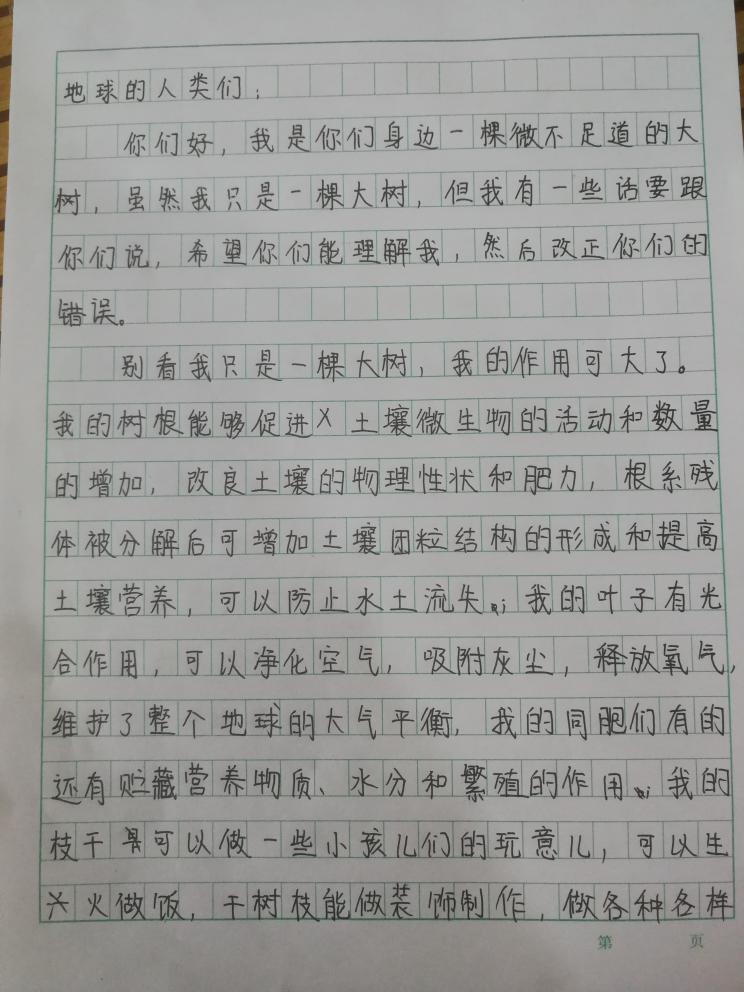 地球的人类们：
你们好，我是你们身边一棵微不足道的大
树，虽然我只是一棵大树，但我有一些话要跟
你们说，希望你们能理解我，然后改正你们的
错误。
别看我只是一棵大树，我的作用可大了。
我的树根能够促进土壤微生物的活动和数量
的增加，改良土壤的物理性状和肥力，根系残
体被分解后可增加土壤团粒结构的形成和提高
土壤营养，可以防止水土流失；我的叶子有光
合作用，可以净化空气，吸附灰尘，释放氧气，
维护了整个地球的大气平衡，我的同胞们有的
还有贮藏营养物质、水分和繁殖的作用；我的
枝干可以做一些小孩儿们的玩意儿，可以生
火做饭，干树枝能做装饰制作，做各种各样
第 页